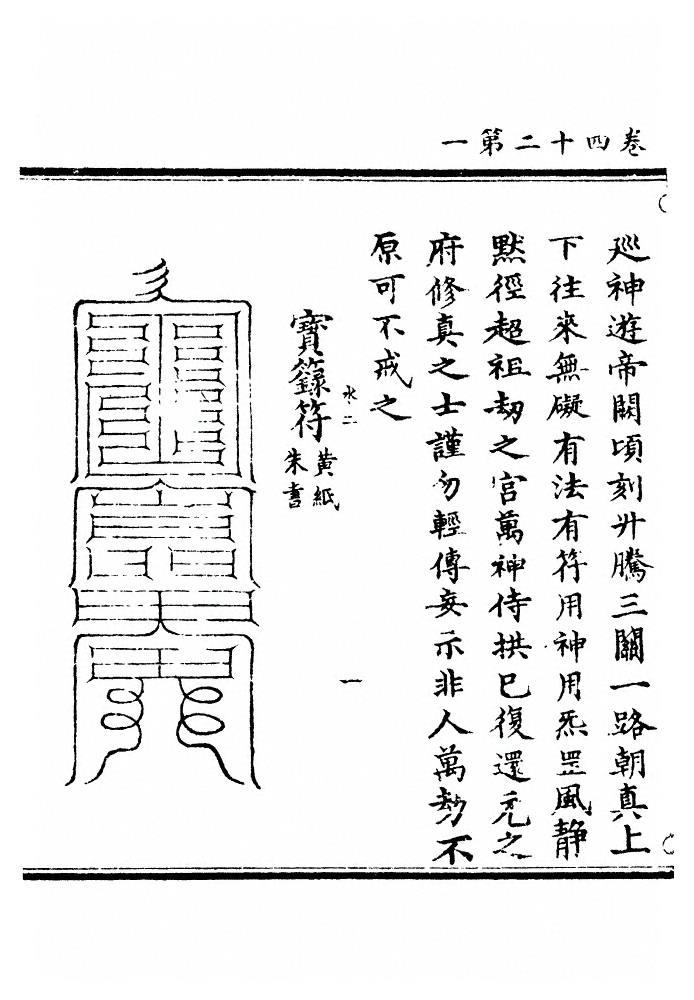 卷四十二第一
廵神遊帝闕頃刻升騰三關一路朝真上
下往來無礙有法有符用神用炁罡風静
黙徑超祖劫之宫萬神侍拱已復還元之
府修真之士謹勿輕傳妄示非人萬劫不
原可不戒之
寶籙符
水二
黄紙
朱書
一